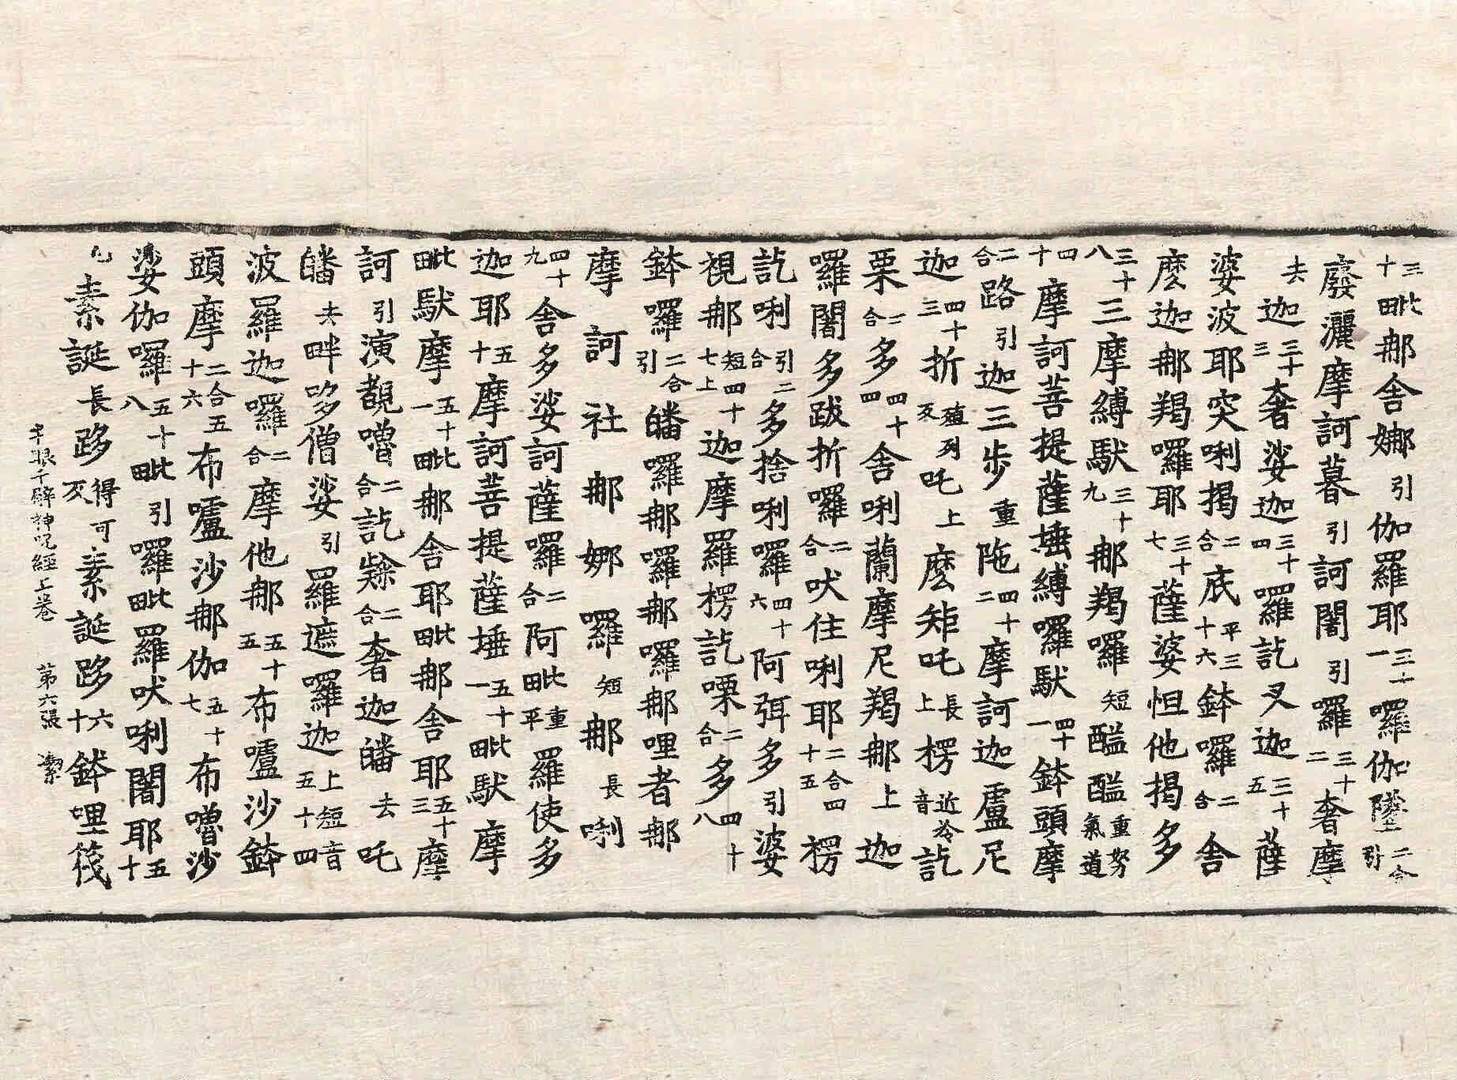 三十毗那舍娜引伽羅耶三十一囉伽墜二合引
廢灑摩訶暮引訶闇引羅三十二奢摩
去迦三十三奢娑迦三十四羅訖叉迦三十五薩
婆波耶突唎揭二合底平三十六鉢囉二合舍
麽迦那羯囉耶三十七薩婆怛他揭多
三十八三摩縛馱三十九那羯囉短醯醯重努氣道
四十摩訶菩提薩埵縛囉馱四十一鉢頭摩
二合路引迦三步重陁四十二摩訶迦盧尼
迦四十三折殖列反吒上麽矩吒長上楞近冷音訖
栗二合多四十四舍唎蘭摩尼羯那上迦
囉闍多跋折囉二合吠住唎耶二合四十五楞
訖唎引二合多捨唎羅四十六阿弭多引婆
視那短四十七上迦摩羅楞訖㗚二合多四十八
鉢囉二合引皤囉那囉那囉那哩者那
摩訶社那娜囉短那長唎
四十九舍多娑訶薩囉二合阿毗重平羅使多
迦耶五十摩訶菩提薩埵五十一毗馱摩
毗馱摩五十一毗那舍耶毗那舍耶五十三摩
訶引演覩嚕二合訖㸄二合奢迦皤去吒
皤去畔哆僧娑引羅遮羅迦上短音五十四
波羅迦囉二合摩他那五十五布嚧沙鉢
頭摩二合五十六布嚧沙那伽五十七布嚕沙
娑伽囉五十八毗毗引囉毗羅吠唎闍耶五十
九素誕長跢得可反素誕跢六十鉢哩筏
千眼千臂神呪經上卷 第六張 潔